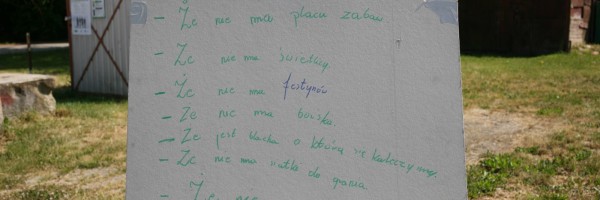 - Że nie ma placu zabaw
- Że nie ma świetlicy
- Że nie ma festynów
- Że nie ma boiska.
- Że jest blacha o którą się kaleczymy.
- Że nie ma siatki do grania
- Że nie